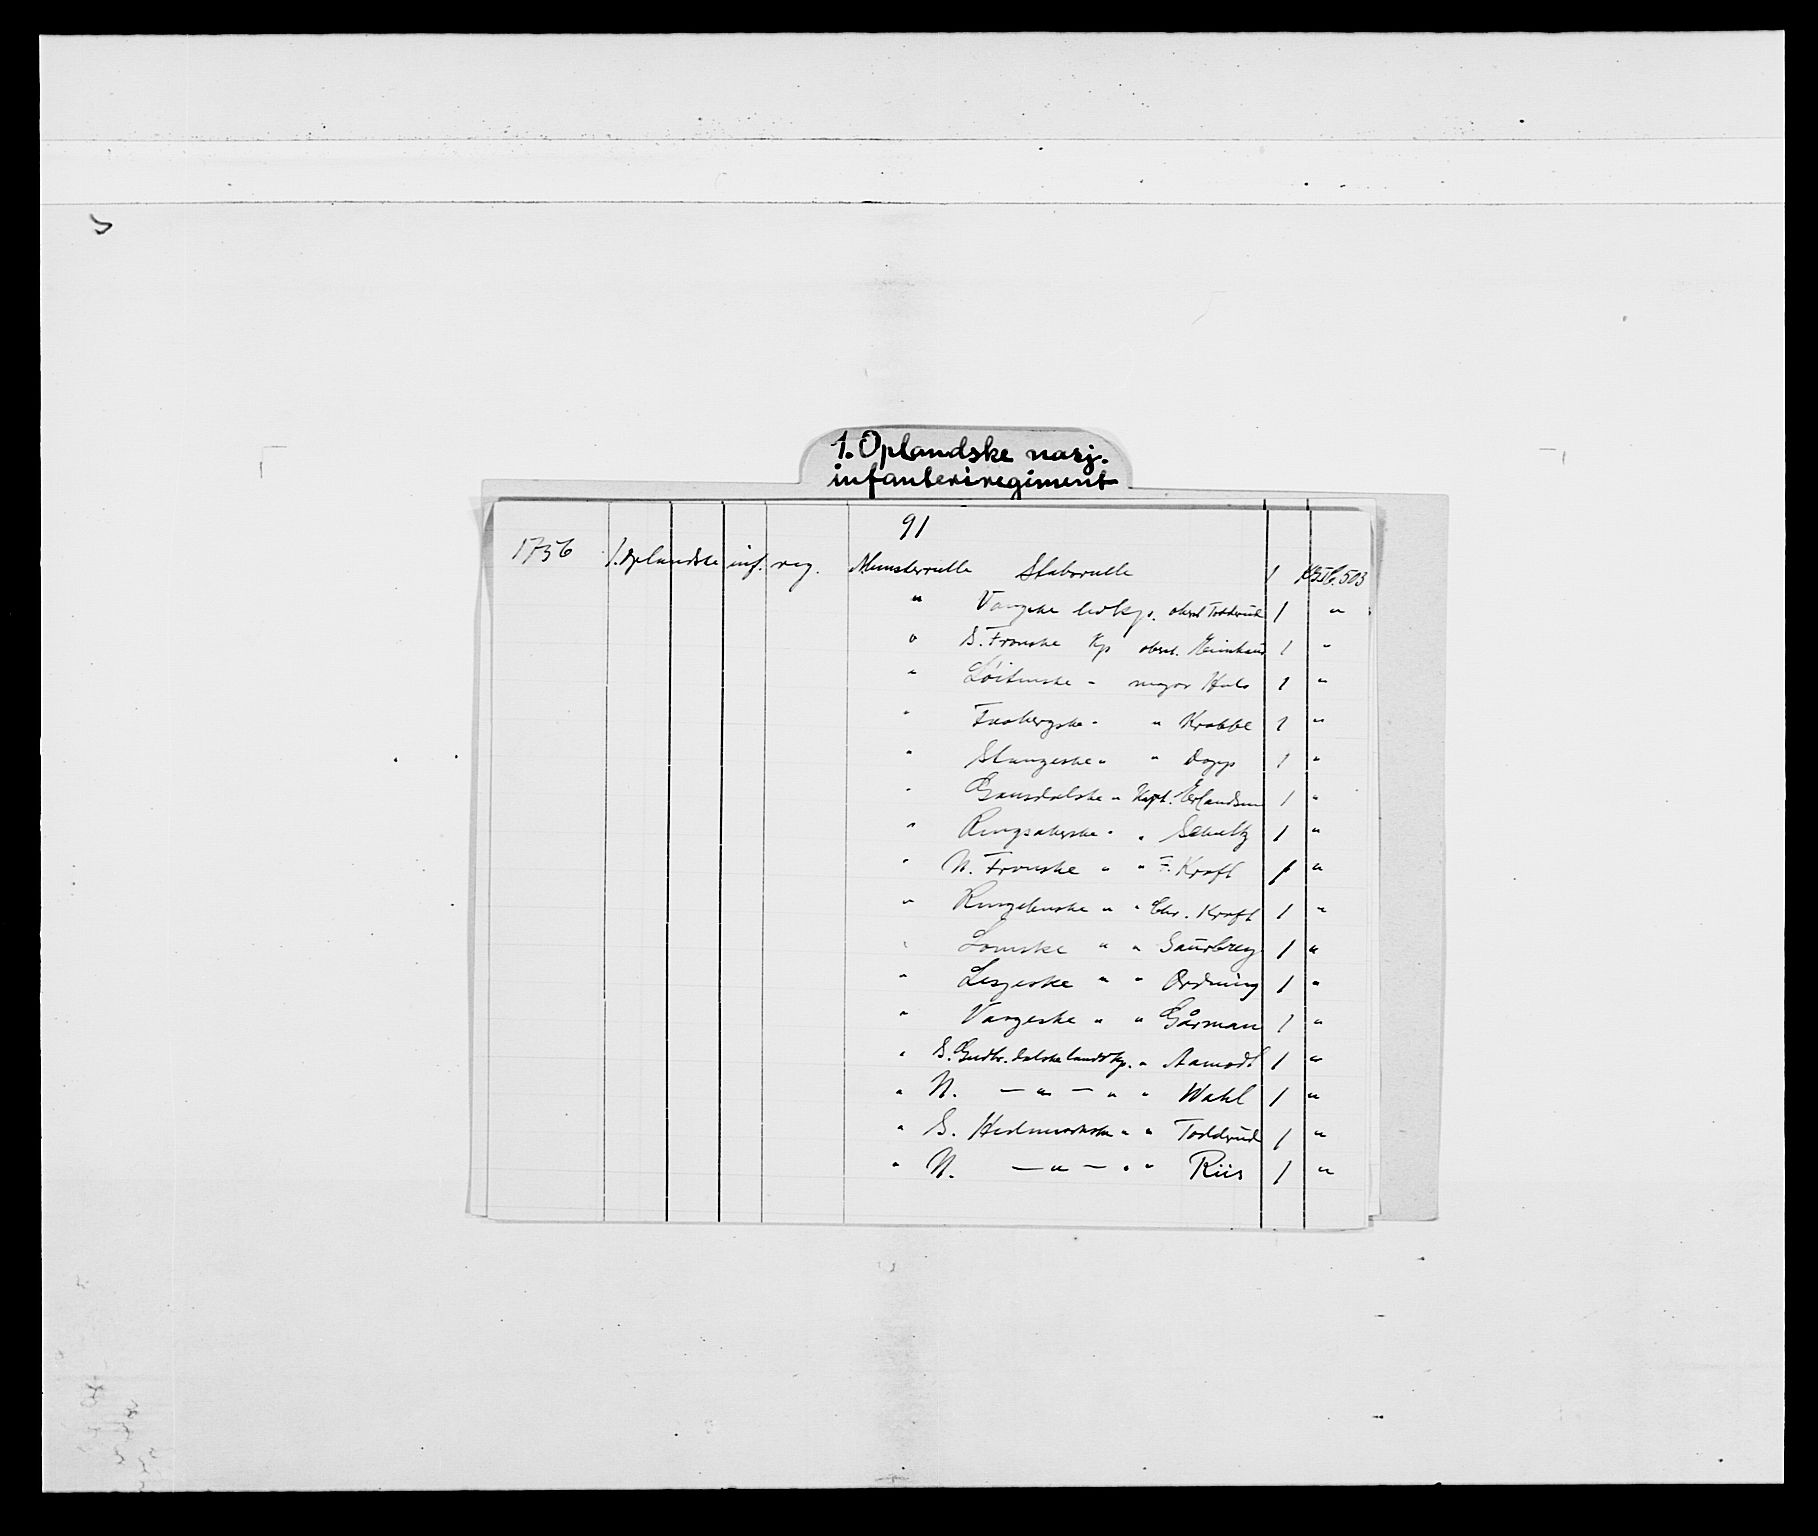 1. Oplandske nasj.
infanteriregiment
91
1756 1. Oplandske inf. reg. Munsterrulle Stabsrulle 1 503
" Vangske livkp. oberst Toddrud 1 "
" S. Fronske Kp oberstl. 1 "
" Løitenske " major 1 "
" Faabergske " " Krabbe 1 "
" Stangeske " " Dopp 1 "
" Gausdalske " Kapt. Erlandsen 1 "
" Ringsakerske " " Schultz 1 "
" N. Fronske " " F. Kraft 1 "
" Ringebuske " " Chr. Kraft 1 "
" Lomske " " Saurbrey 1 "
" Lesjeske " " Ordning 1 "
" Vangeske " " Gårman 1 "
" S. Gudbr. dalske landv. kp. " Aamodt 1 "
" N. — " — " " Wahl 1 "
" S. Hedmarkske " " Toddrud 1 "
" N. — " — " " Riis 1 "